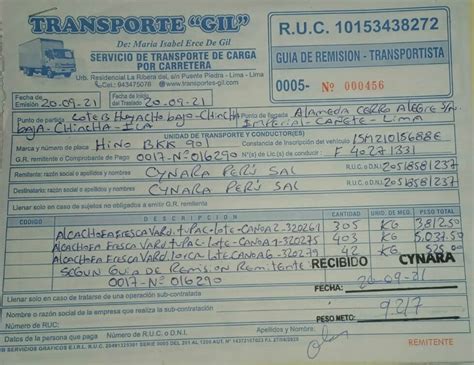 TRANSPORTE "GIL"
De: Maria Isabel Erce De Gil
SERVICIO DE TRANSPORTE DE CARGA
POR CARRETERA
Urb. Residencial La Ribera s/n Puente Piedra - Lima - Lima
www.transportes-gil.com
R.U.C. 10153438272
GUIA DE REMISION - TRANSPORTISTA
0005- Nº 000456
Fecha de Emisión 20-09-21 Fecha de Inicio del Traslado 20-09-21
Punto de partida Lote B Hoyacho bajo-Chincha baja-Chincha-Ica
Punto de llegada Alameda Cerro Alegre S/n. Imperial-Cañete-Lima
UNIDAD DE TRANSPORTE Y CONDUCTOR(ES)
Marca y número de placa Hino BKK 901 Constancia de Inscripción del vehículo 15M21015688E
G.R. remitente o Comprobante de Pago 0017-Nº 016290 Nº(s) de Lic.(s) de conducir F 40271331
Remitente: razón social o apellidos y nombre CYNARA PERÚ SAC R.U.C. o D.N.I. 20518581237
Destinatario: razón social o apellidos y nombres CYNARA PERÚ SAC R.U.C. o D.N.I. 20518581237
Llenar solo en caso de sujetos no obligados a emitir G.R. remitente
CÓDIGO DESCRIPCIÓN CANTIDAD UNID. DE MED. PESO TOTAL
Alcachofa Fresca Var D. t. Pac-Lote-Canoa2-320261 305 KG 3812.50
Alcachofa Fresca Var D. t. Pac-Lote-Canoa1-320275 403 KG 5,037.50
Alcachofa Fresca Var D. Lorca Lote Canoa6-320279 42 KG 525.00
Según Guía de Remision Remitente
0017-Nº 016290
RECIBIDO CYNARA
FECHA: 20-09-21
Llenar solo en caso de tratarse de una operación sub-contratada
Nombre o razón social de la empresa que realiza la sub-contratación
Número de RUC:
PESO NETO: 9.217
Datos de la persona que paga Número de R.U.C. o D.N.I. Apellidos y Nombre
REMITENTE